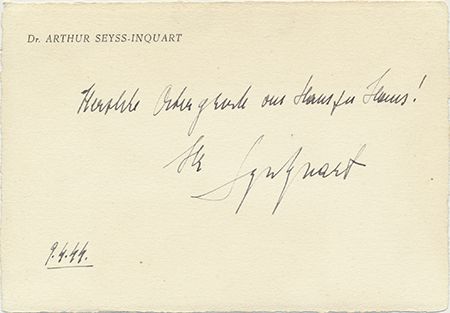 Dr. ARTHUR SEYSS-INQUART
Herzliche Ostergrüsse von Haus zu Haus!
Ihr
SeyßInquart
9.4.44.